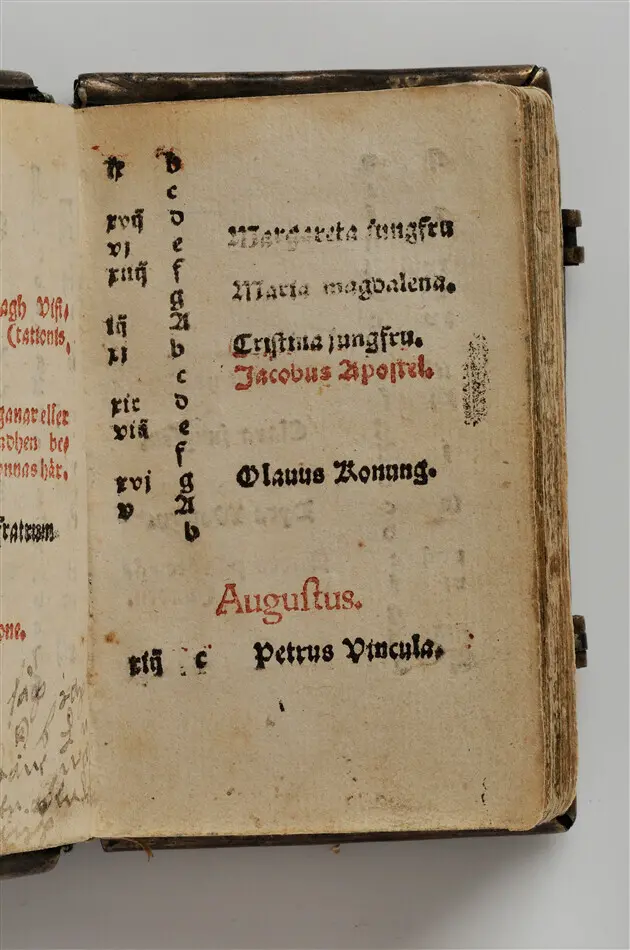 agh Viſi,
(tationis,
gangar eller
adhen be,
onnas här.
fratrum
one.
ix b
c
xvij d
vj e Margareta jungfru
xiiij f
g Maria magdalena.
iij A
xj b Criſtina jungfru.
c Jacobus Apoſtel.
xix d
viij e
f
xvj g Olauus Konung.
v A
b
Auguſtus.
xiij c Petrus Vincula.